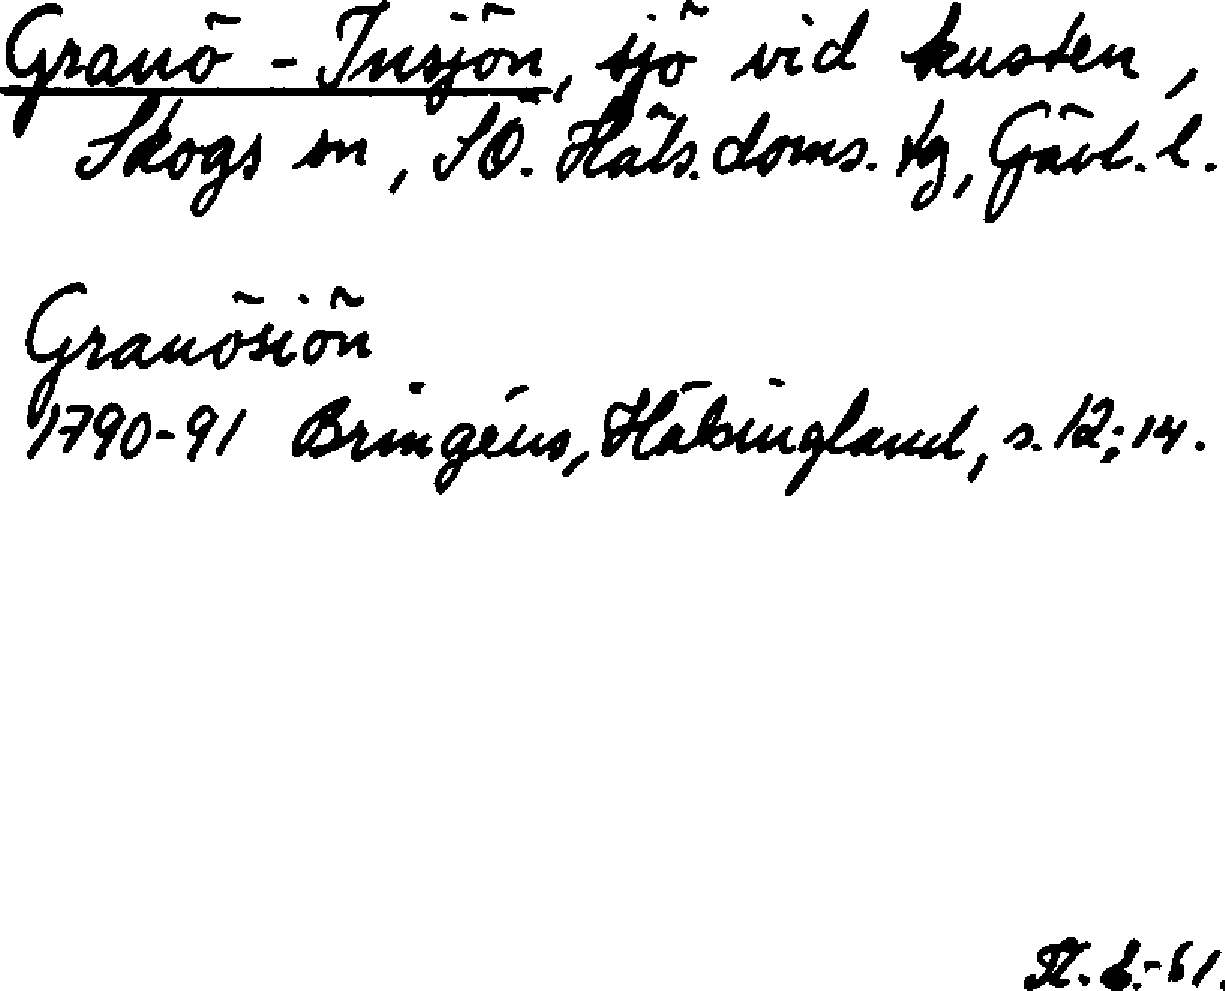 Granö - Insjön, sjö vid kusten,
Skogs sn, SÖ. Häls. doms. tg, Gävl. l.
Granösiön
1790-91 Bringéus, Hälsingland, s. 12; 14.
-61.